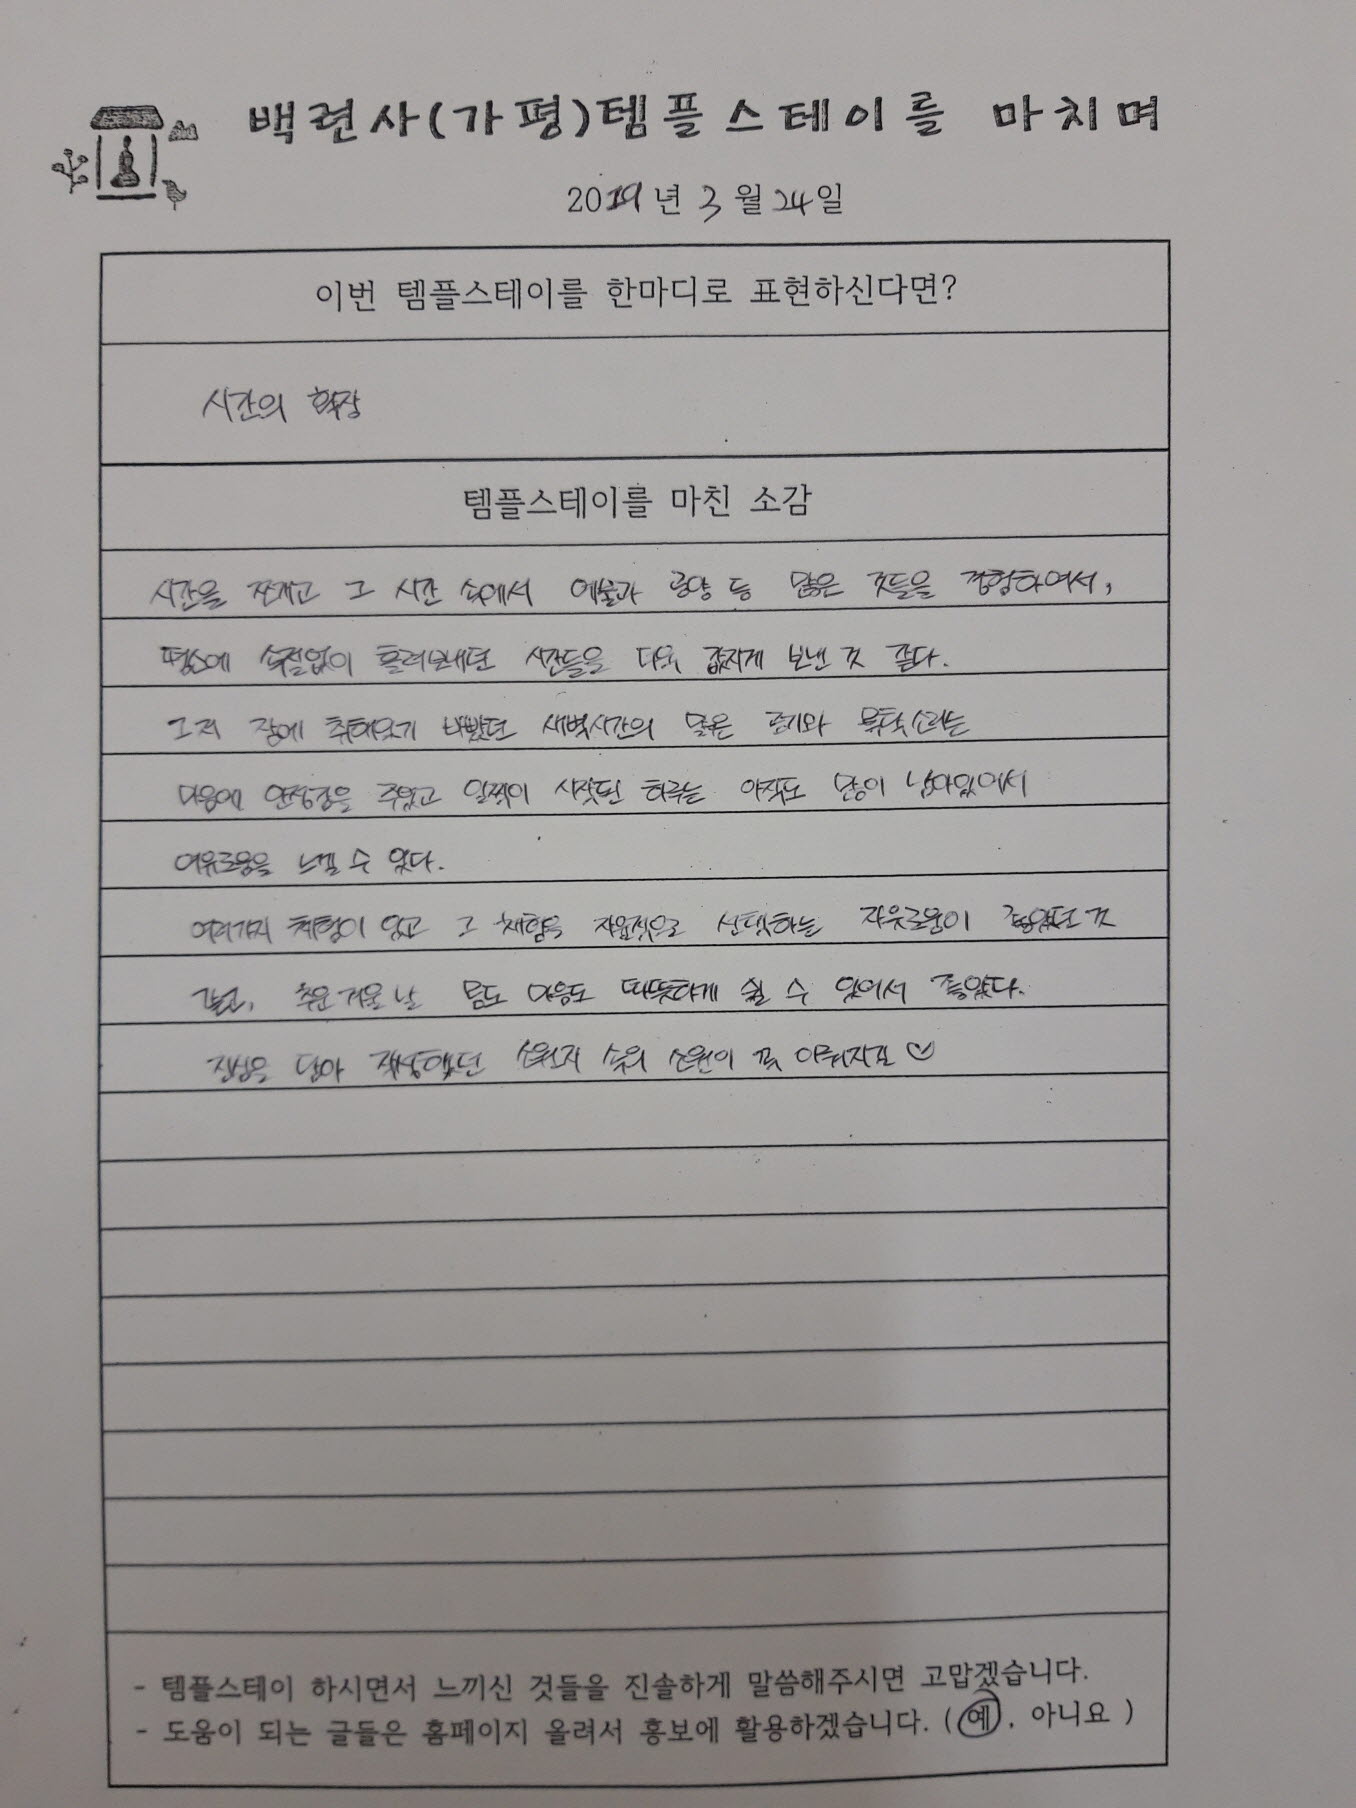 백련사(가평)템플스테이를 마치며
2019년 3월 24일
이번 템플스테이를 한마디로 표현하신다면?
시간의 확장
템플스테이를 마친 소감
시간을 쪼개고 그 시간 속에서 예불과 공양 등 많은 것들을 경험하여서,
평소에 속절없이 흘려보내던 시간들을 더욱 값지게 보낸 것 같다.
그저 잠에 취해있기 바빴던 새벽시간의 맑은 공기와 목탁소리는
마음에 안정감을 주었고 일찍이 시작된 하루는 아직도 많이 남아있어서
여유로움을 느낄 수 있다.
여러가지 체험이 있고 그 체험을 자율적으로 선택하는 자유로움이 좋았던 것
같고, 추운 겨울 날 몸도 마음도 따뜻하게 쉴 수 있어서 좋았다.
진심을 담아 작성했던 소원지 속의 소원이 꼭 이뤄지길 ♡
- 템플스테이 하시면서 느끼신 것들을 진솔하게 말씀해주시면 고맙겠습니다.
- 도움이 되는 글들은 홈페이지 올려서 홍보에 활용하겠습니다. ( 예, 아니요 )